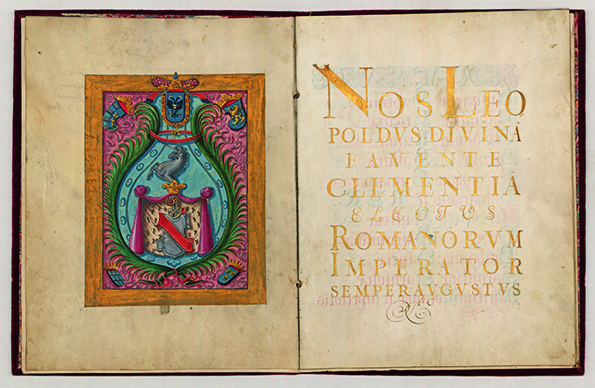 NOS LEO
POLDVS DIVINA
FAVENTE
CLEMENTIA
ELECTUS
ROMANORVM
IMPERATOR
SEMPER AUGUSTUS